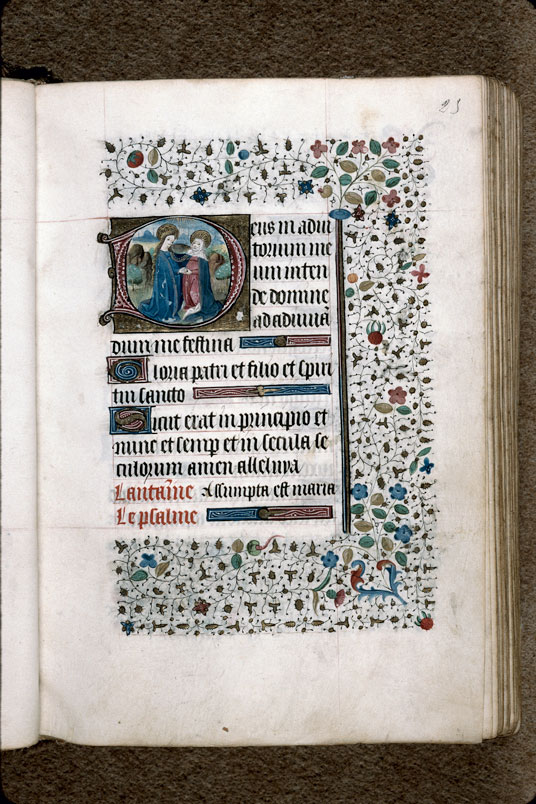 23
Deus in adiu
torium me
um inten
de domine
ad adiuuā
dum me festina
Gloria patri et filio et spiri
tui sancto
Sicut erat in principio et
nunc et semp et in secula se
culorum amen alleluya
Lantaīne Assumpta est maria
Le psalme